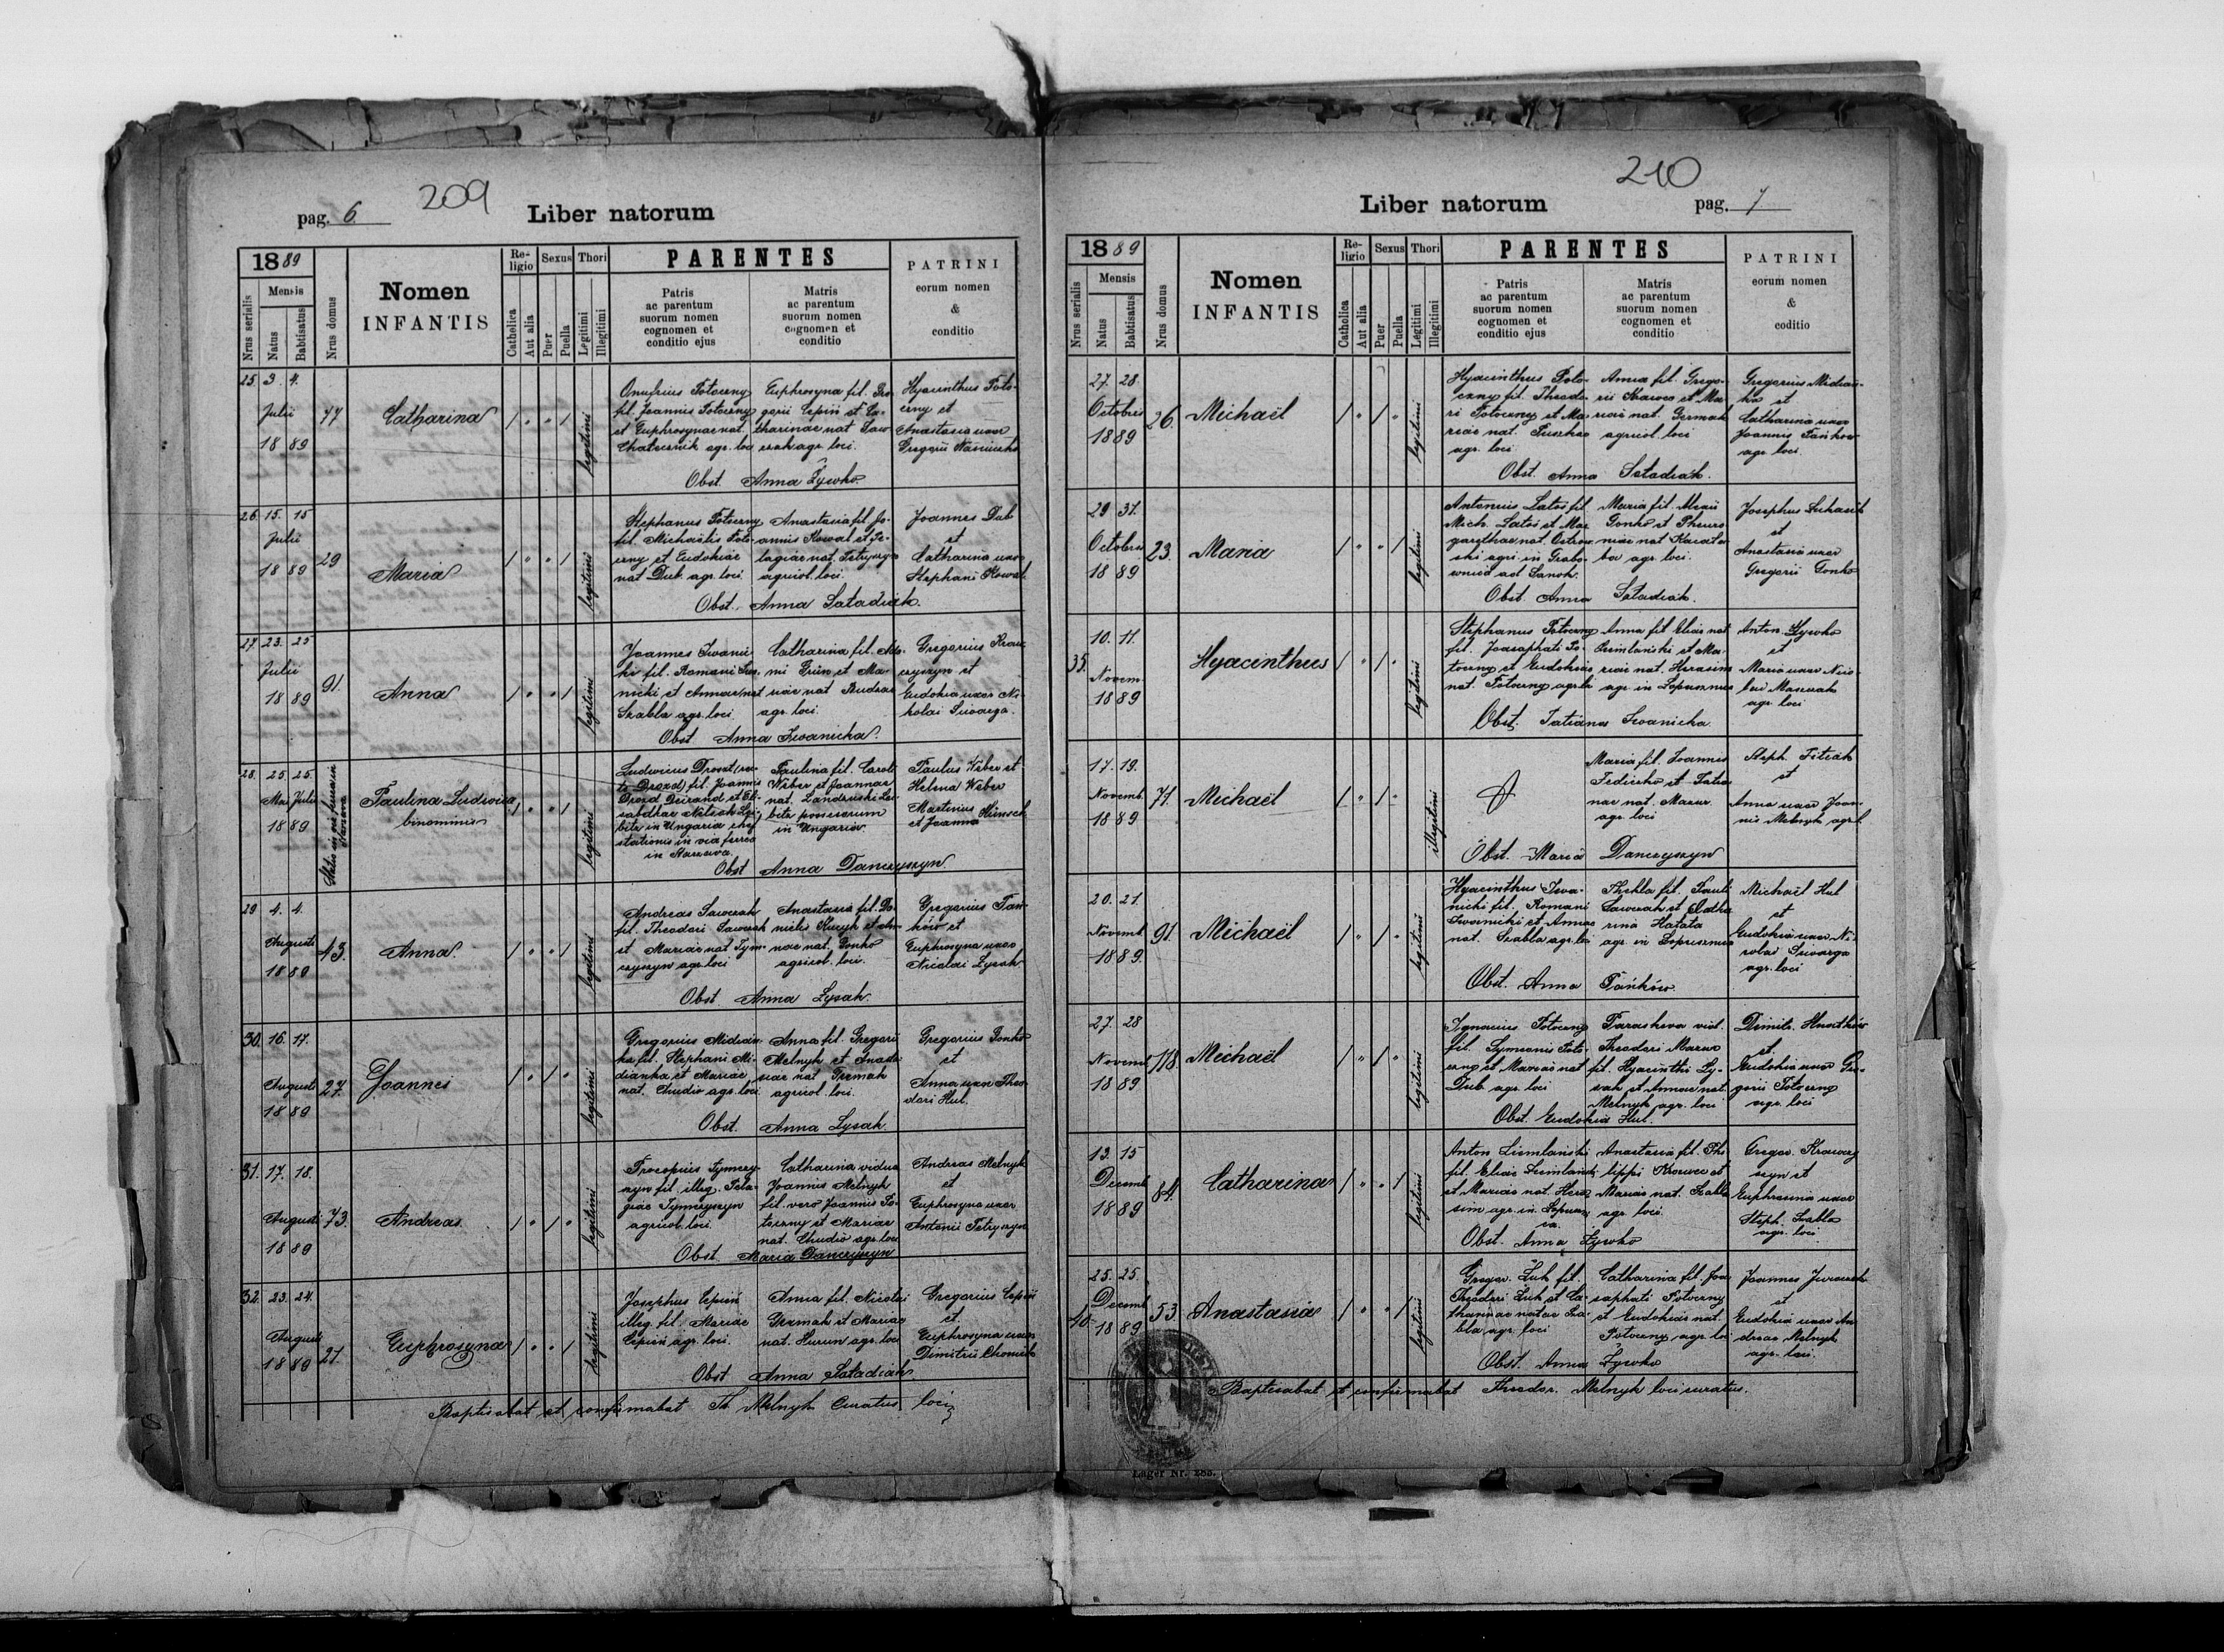 209
pag. 6
Liber natorum
1889
Nrus serialis
Mensis
Natus
Babtisatus
Nrus domus
Nomen
INFANTIS
Religio
Catholica
Aut alia
Sexus
Puer
Puella
Thori
Legitimi
Illegitimi
PARENTES
Patris
ac parentum
suorum nomen
cognomen et
conditio ejus
Matris
ac parentum
suorum nomen
cognomen et
conditio
PATRINI
eorum nomen
&
conditio
25. 3. 4.
Julii
1889
77
Catharina
legitimi
Onufrius Potoczny
fil. Joannis Potoczny
et Euphrosynae nat.
agr. loci
Euphrosyna fil. Gre-
gorii Cepiń et Ca-
tharinae nat Saw-
czak agr. loci.
Hyacinthus Poto-
czny et
Anastasia uxor
Gregorii
Obst. Anna Żywko
26. 15. 15
Julii
1889
29
Maria
legitimi
Stephanus Potoczny
fil. Michaëlis Poto-
czny et Eudokiae
nat Dub. agr. loci
Anastasia fil. Jo-
annis Kowal et Pe-
lagiae nat. Petryszyn
agricol. loci.
Joannes Dub
et
Catharina uxor
Stephani Kowal
Obst. Anna Satadiak.
27. 23. 25
Julii
1889
91.
Anna
legitimi
Joannes Iwanic-
ki fil. Romani Iwa-
nicki et Annae nat
Szabla agr. loci
Catharina fil.
et Ma-
riae nat
agr. loci.
Gregorius Kraw-
czyszyn et
Eudokia uxor Ni-
kolai Suwarga.
Obst. Anna Iwanicka.
28. 25. 25.
Mai Julii
1889
Paulina Ludovica
binominis
legitimi
Ludovicus
Drozd fil. Joannis
Drozd
in Ungaria
stationis in via ferrea
in
Paulina fil. Caroli
Weber et Joannae
nat.
in Ungaria
Paulus Weber et
Helena Weber
Martinus
et Joanna
Obst Anna Danczyszyn
29 4. 4.
Augusti
1889
43.
Anna.
legitimi
Andreas Sawczak
fil. Theodori Sawczak
et Mariae nat Tym-
czyszyn agr. loci
Anastasia fil. Da-
nielis et An-
nae nat. Gonko
agricol. loci.
Gregorius Pań-
ków et
Euphrosyna uxor
Nicolai Łysak
Obst. Anna Łysak.
30. 16. 17.
Augusti
1889
27.
Joannes
legitimi
Gregorius Midian-
ka fil. Stephani Mi-
dianka et Mariae
nat. Chudio agr. loci
Anna fil. Gregorii
Melnyk et Anasta-
siae nat Germak
agricol. loci.
Gregorius Gonko
et
Anna uxor Theo-
dori Hul.
Obst. Anna Łysak
31. 17. 18.
Augusti
1889
73.
Andreas.
legitimi
Procopius Tymczy-
szyn fil. illeg. Pela-
giae Tymczyszyn
agricol. loci
Catharina vidua
Joannis Melnyk
fil. vero Joannis Po-
toczny et Mariae
nat. Chudio agr. loci
Andreas Melnyk
et
Euphrosyna uxor
Antonii Petryszyn
Obst. Maria Danczyszyn
32. 23. 24.
Augusti
1889
21.
Euphrosyna
legitimi
Josephus Cepiń
illeg. fil. Mariae
Cepiń agr. loci.
Anna fil. Nicolai
Germak et Mariae
nat. Hurun agr. loci
Gregorius Cepiń
et
Euphrosyna uxor
Dimitrii
Obst Anna Satadiak
Baptisabat et confirmabat Th Melnyk Curatus loci
210
Liber natorum
pag. 7
1889
Nrus serialis
Mensis
Natus
Babtisatus
Nrus domus
Nomen
INFANTIS
Religio
Catholica
Aut alia
Sexus
Puer
Puella
Thori
Legitimi
Illegitimi
PARENTES
Patris
ac parentum
suorum nomen
cognomen et
conditio ejus
Matris
ac parentum
suorum nomen
cognomen et
conditio
PATRINI
eorum nomen
&
coditio
27. 28
Octobris
1889
26.
Michaël
legitimi
Hyacinthus Poto-
czny fil. Theodo-
ri Potoczny et Ma-
riae nat.
agr. loci
Anna fil. Grego-
rii Krawec et Ma-
riae nat. Germak
agricol. loci
Gregorius Midian-
ka et
Catharina uxor
Joannis Pańkow
agr. loci.
Obst. Anna Satadiak.
29 31.
Octobris
1889
23.
Maria
legitimi
Antonius Latoś fil
Mich. Latoś et Mar-
garethae nat.
agr. in Grabo-
wnica ad Sanok.
Maria fil.
Gonko et
nat
agr. loci.
Josephus
et
Anastasia uxor
Gregorii Gonko
Obst. Anna Satadiak.
10. 11.
Novem.
1889
35.
Hyacinthus
legitimi
Stephanus Potoczny
fil. Joasaphati Po-
toczny et Eudokiae
nat. Potoczny agr. loci
Anna fil Eliae
et Ma-
riae nat. Herasim
agr in Łopuszna
Anton. Żywko
et
Maria uxor Nico-
lai
agr. loci
Obst. Tatiana Iwanicka.
17. 19.
Novemb.
1889
71.
Michaël
illegitimi
Maria fil. Joannis
et Tatia-
nae nat. Mazur
agr. loci
Steph.
et
Anna uxor Joan-
nis Melnyk agr. l.
Obst. Maria Danczyszyn
20. 21.
Novemb.
1889.
91.
Michaël
legitimi
Hyacinthus Iwa-
nicki fil. Romani
Iwanicki et Annae
nat. Szabla agr. loci
Thekla fil. Pauli
Sawczak et Catha-
rina Hatała
agr in Łopuszna
Michaël Hul
et
Eudokia uxor Ni-
colai Suwarga
agr. loci
Obst. Anna Pańków
27. 28
Novemb
1889
118.
Michaël
legitimi
Ignacius Potoczny
fil. Symeonis Poto-
czny et Mariae nat
Dub agr. loci
Paraskeva vid.
Theodori Mazur
fil. Hyacinthi Ły-
sak et Annae nat.
Melnyk agr. loci
Dimitr. Hnatków
et
Eudokia uxor Gre-
gorii Potoczny
agr. loci
Obst. Eudokia Hul.
13. 15
Decemb.
1889
84.
Catharina
legitimi
Anton
fil. Eliae
et Mariae nat. Hera-
sim agr. in Łopusz-
na
Anastasia fil. Phi-
lippi Krawec et
Mariae nat. Szabla
agr. loci.
Gregor. Krawczy-
szyn et
Euphrosina uxor
Steph. Szabla
agr. loci
Obst. Anna Żywko
25. 25.
Decemb
1889
40.
53.
Anastasia
legitimi
Gregor. Łuk fil.
Theodori Łuk et Ca-
tharinae natae Sza-
bla agr. loci
Catharina fil. Joa-
saphati Potoczny
et Eudokiae nat.
Potoczny agr. loci
Joannes
et
Eudokia uxor An-
dreae Melnyk
agr. loci.
Obst. Anna Żywko
Baptisabat et confirmabat Theodor. Melnyk loci curatus.
Lager Nr. 285.